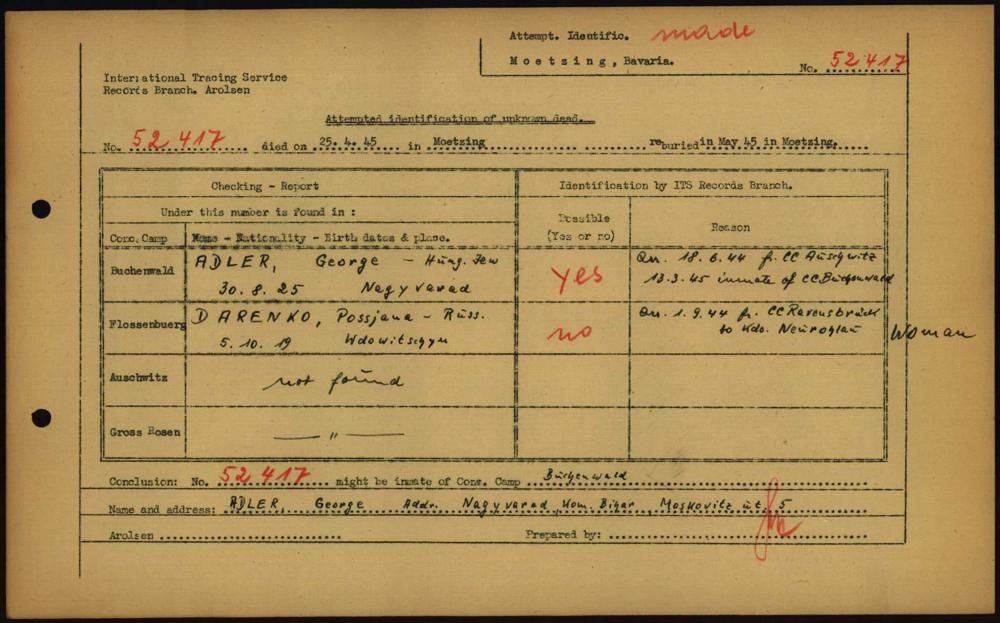 Attempt. Identific. made
Moetzing, Bavaria.
No. 52.417
International Tracing Service
Records Branch. Arolsen
Attempted identification of unknown dead.
No. 52.417 died on 25.4.45 in Moetzing reburied in May 45 in Moetzing.
Checking - Report
Identification by ITS Records Branch.
Under this number is found in :
Possible
(Yes or no)
Reason
Conc. Camp
Name - Nationality - Birth dates & place.
Buchenwald
ADLER, George - Hung. Jew
30.8.25 Nagyvarad
yes
Arr. 18.6.44 fr. CC Auschwitz
13.3.45 inmate of CC Buchenwald
Flossenbuerg
DARENKO, Possjana - Russ.
5.10.19 Wdowitschyn
no
Arr. 1.9.44 fr. CC Ravensbrück
to Kdo. Neurohlau
Woman
Auschwitz
not found
Gross Rosen
— " —
Conclusion: No. 52.417 might be inmate of Conc. Camp Buchenwald
Name and address: ADLER, George Addr. Nagyvarad, Kom. Bihar, Moskovitz út. 5
Arolsen
Prepared by: